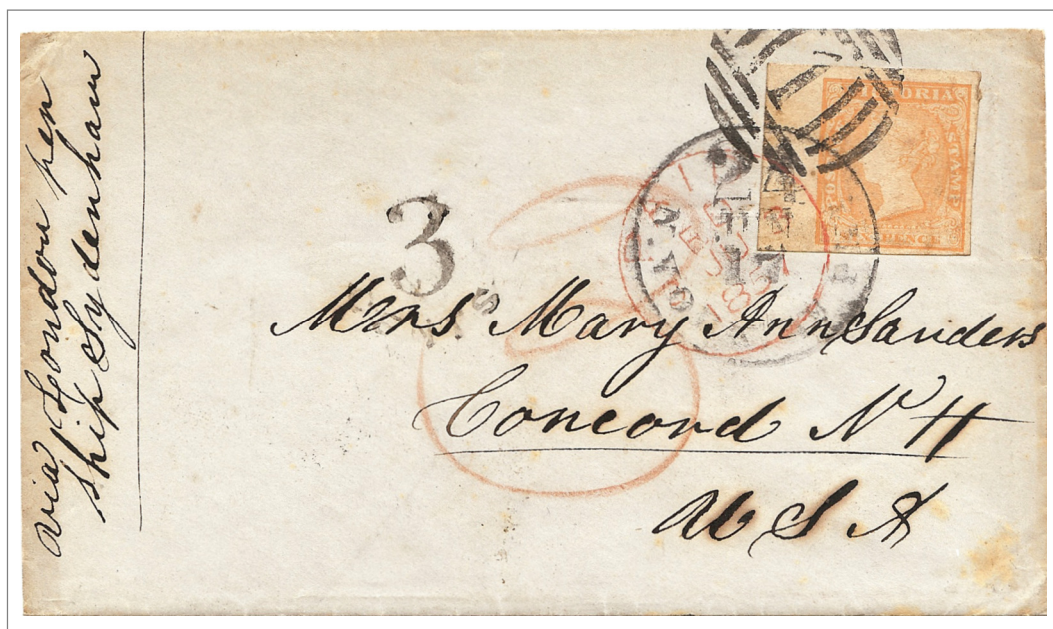 via London per
ship Sydenham
3
VICTORIA
STAMP
PENCE
Mrs Mary Ann Sanders
Concord N H
U S A